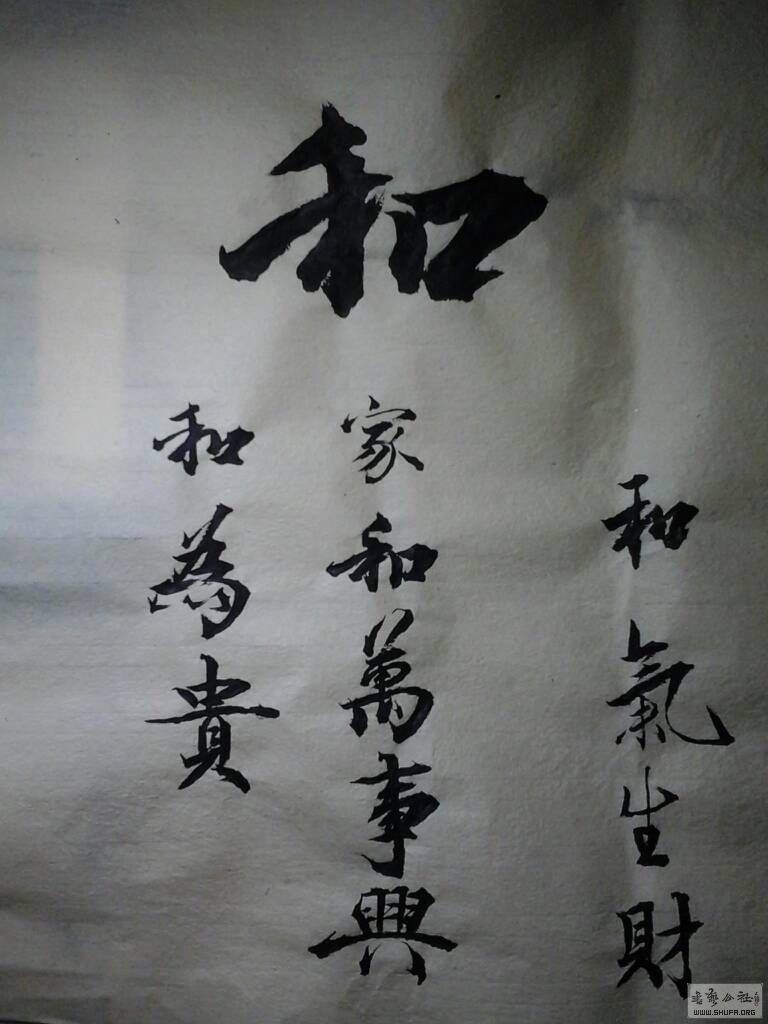 和
和氣生財
家和萬事興
和為貴
書藝公社
WWW.SHUFA.ORG